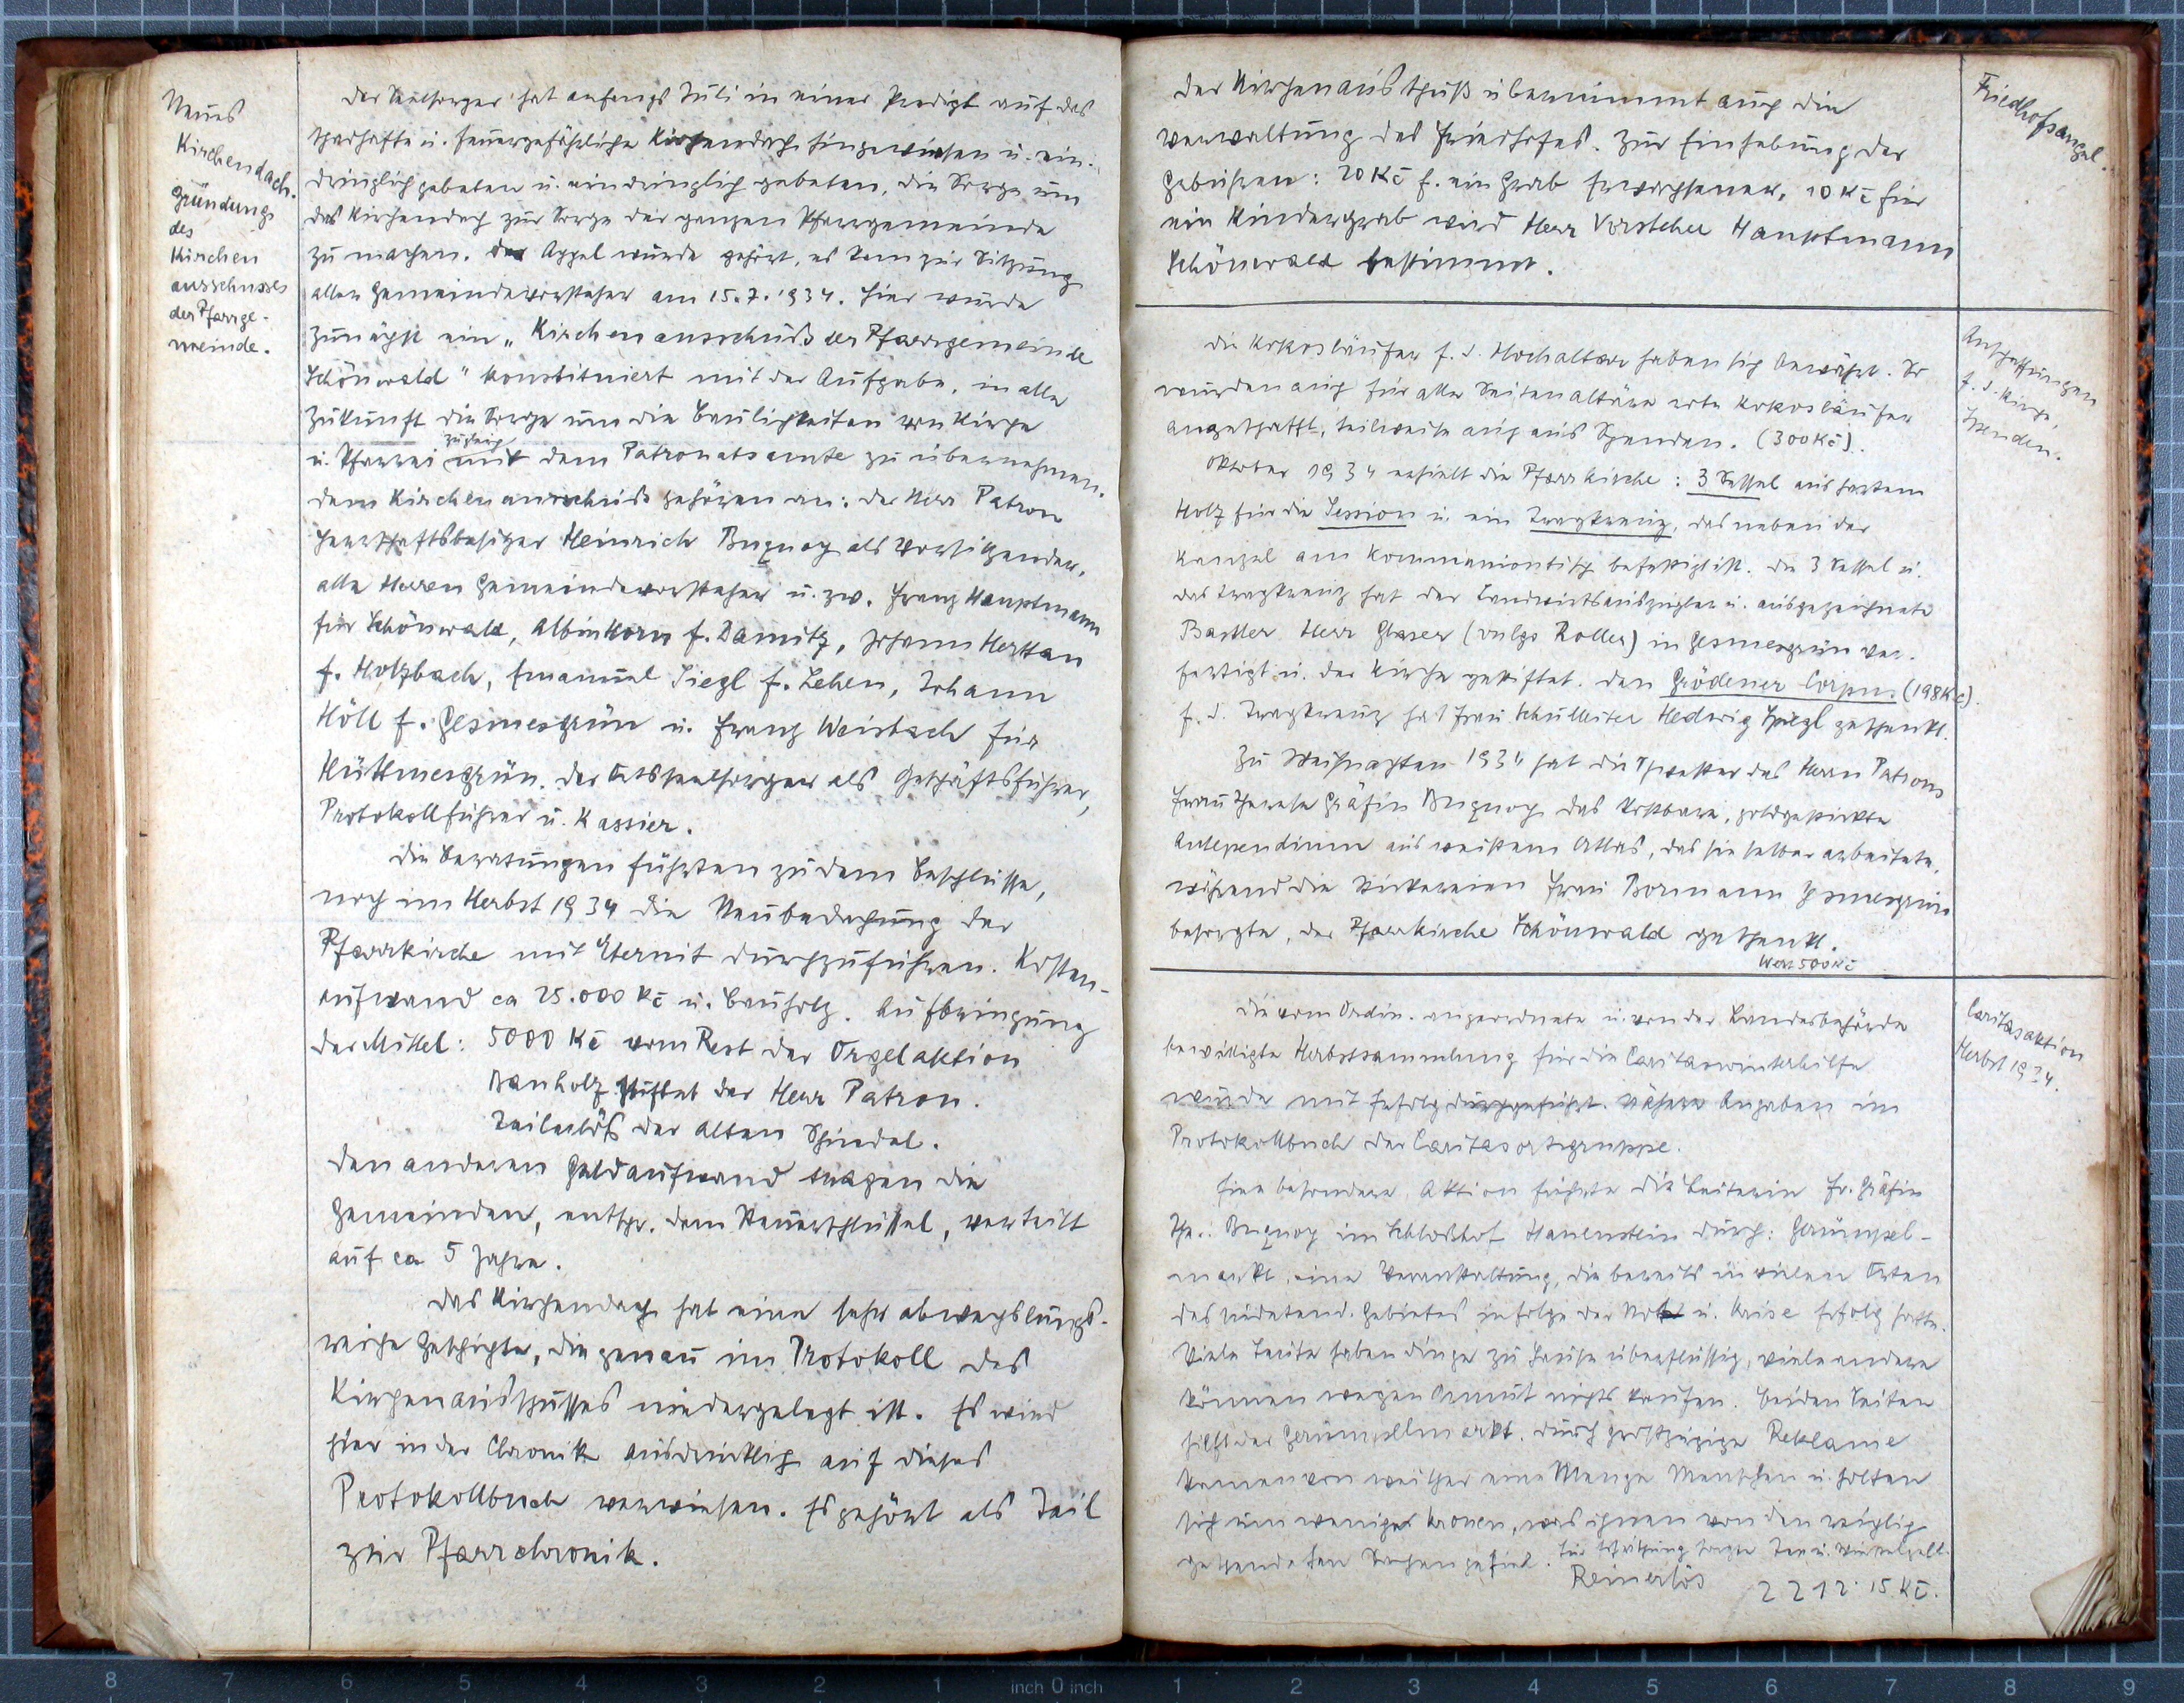 Neues
Kirchendach.
Gründung
des
Kirchen
ausschusses
der Pfarrge-
meinde.
Der Seelsorger hat anfangs Juli in einer Predigt auf das
schadhafte u. feuergefährliche Kirchendach hingewiesen u. ein-
dringlich gebeten u. eindringlich gebeten, die Sorge um
das Kirchendach zur Sorge der ganzen Pfarrgemeinde
zu machen. Der Appel wurde gehört, es kam zur Sitzung
aller Gemeindevorsteher am 15.7.1934. Hier wurde
zunächst ein "Kirchenausschuß der Pfarrgemeinde
Schönwald" konstituiert mit der Aufgabe, in alle
Zukunft die Sorge um die Baulichkeiten von Kirche
u. Pfarrei zugleich mit dem Patronatsamte zu übernehmen.
Dem Kirchenausschuß gehören an: der Herr Patron
Herrschaftsbesitzer Heinrich Buquoy als Vorsitzender,
alle Herren Gemeindevorsteher u. zw. Franz Hauptmann
für Schönwald, Albin Korn f. Damitz, Johann Herttan
f. Holzbach, Emanuel Siegl f. Lehen, Johann
Höll f. Gesmesgrün u. Franz Weisbach für
Hüttmesgrün. Der Ortsseelsorger als Geschäftsführer,
Protokollführer u. Kassier.
Die Beratungen führten zu dem Beschlusse,
noch im Herbst 1934 die Neubedachung der
Pfarrkirche mit Eternit durchzuführen. Kosten-
aufwand ca 25.000 Kč u. Bauholz. Aufbringung
der Mittel: 5000 Kč vom Rest der Orgelaktion
Bauholz stiftet der Herr Patron.
Teilerlös der alten Schindel.
Den anderen Geldaufwand tragen die
Gemeinden, entspr. dem Steuerschlüssel, verteilt
auf ca 5 Jahre.
Das Kirchendach hat eine sehr abwechslungs-
reiche Geschichte, die genau im Protokoll des
Kirchenausschusses niedergelegt ist. Es wird
hier in der Chronik ausdrücklich auf dieses
Protokollbuch verwiesen. Es gehört als Teil
zur Pfarrchronik.
Der Kirchenausschuß übernimmt auch die
Verwaltung des Friedhofes. Zur Einhebung der
Gebühren: 20 Kč f. ein Grab Erwachsener, 10 Kč für
ein Kindergrab wird Herr Vorsteher Hauptmann
Schönwald bestimmt.
Friedhofsangel.
Die Kokosläufer f. d. Hochaltar haben sich bewährt. So
wurden auch für alle Seitenaltäre rote Kokosläufer
angeschafft, teilweise auch aus Spenden. (300 Kč).
Oktober 1934 erhielt die Pfarrkirche: 3 Sessel aus hartem
Holz für die Session u. ein Tragkreuz, das neben der
Kanzel am Kommuniontisch befestigt ist. Die 3 Sessel u.
das Tragkreuz hat der Landwirtsauszügler u. ausgezeichnete
Bastler Herr Glaser (vulgo Roller) in Gesmesgrün ver-
fertigt u. der Kirche gestiftet. Den Grödener Corpus (198 Kč)
f. d. Tragkreuz hat Frau Schulleiter Hedwig Spiegl geschenkt.
Zu Weihnachten 1934 hat die Schwester des Herrn Patrons
Frau Therese Gräfin Buquoy das kostbare, goldgestickte
Antependium aus weißem Atlas, das sie selber arbeitete,
während die Stickereien Frau Bormann Gesmesgrün
besorgte, der Pfarrkirche Schönwald geschenkt.
Wert 500 Kč
Anschaffungen
f. d. Kirche,
Spenden.
Die vom Ordin. angeordnete u. von der Landesbehörde
bewilligte Herbstsammlung für die Caritaswinterhilfe
wurde mit Erfolg durchgeführt. Nähere Angaben im
Protokollbuch der Caritasortsgruppe.
Eine besondere Aktion führte die Leiterin Fr. Gräfin
Th. Buquoy im Schloßhof Hauenstein durch: Gerümpel-
markt, eine Veranstaltung, die bereits in vielen Orten
des sudetend. Gebietes infolge der Not u. Krise Erfolg hatte.
Viele Leute haben Dinge zu Hause überflüssig, viele andere
können wegen Armut nichts kaufen. Beiden Seiten
hilft der Gerümpelmarkt. Durch großzügige Reklame
kamen von weither eine Menge Menschen u. holten
sich um wenige Kronen, was ihnen von den reichlich
gespendeten Sachen gefiel. Für Erfrischung sorgte Tee u.
Reinerlös 2212.15 Kč.
Caritasaktion
Herbst 1934.
8 7 6 5 4 3 2 1 inch 0 inch 1 2 3 4 5 6 7 8 9